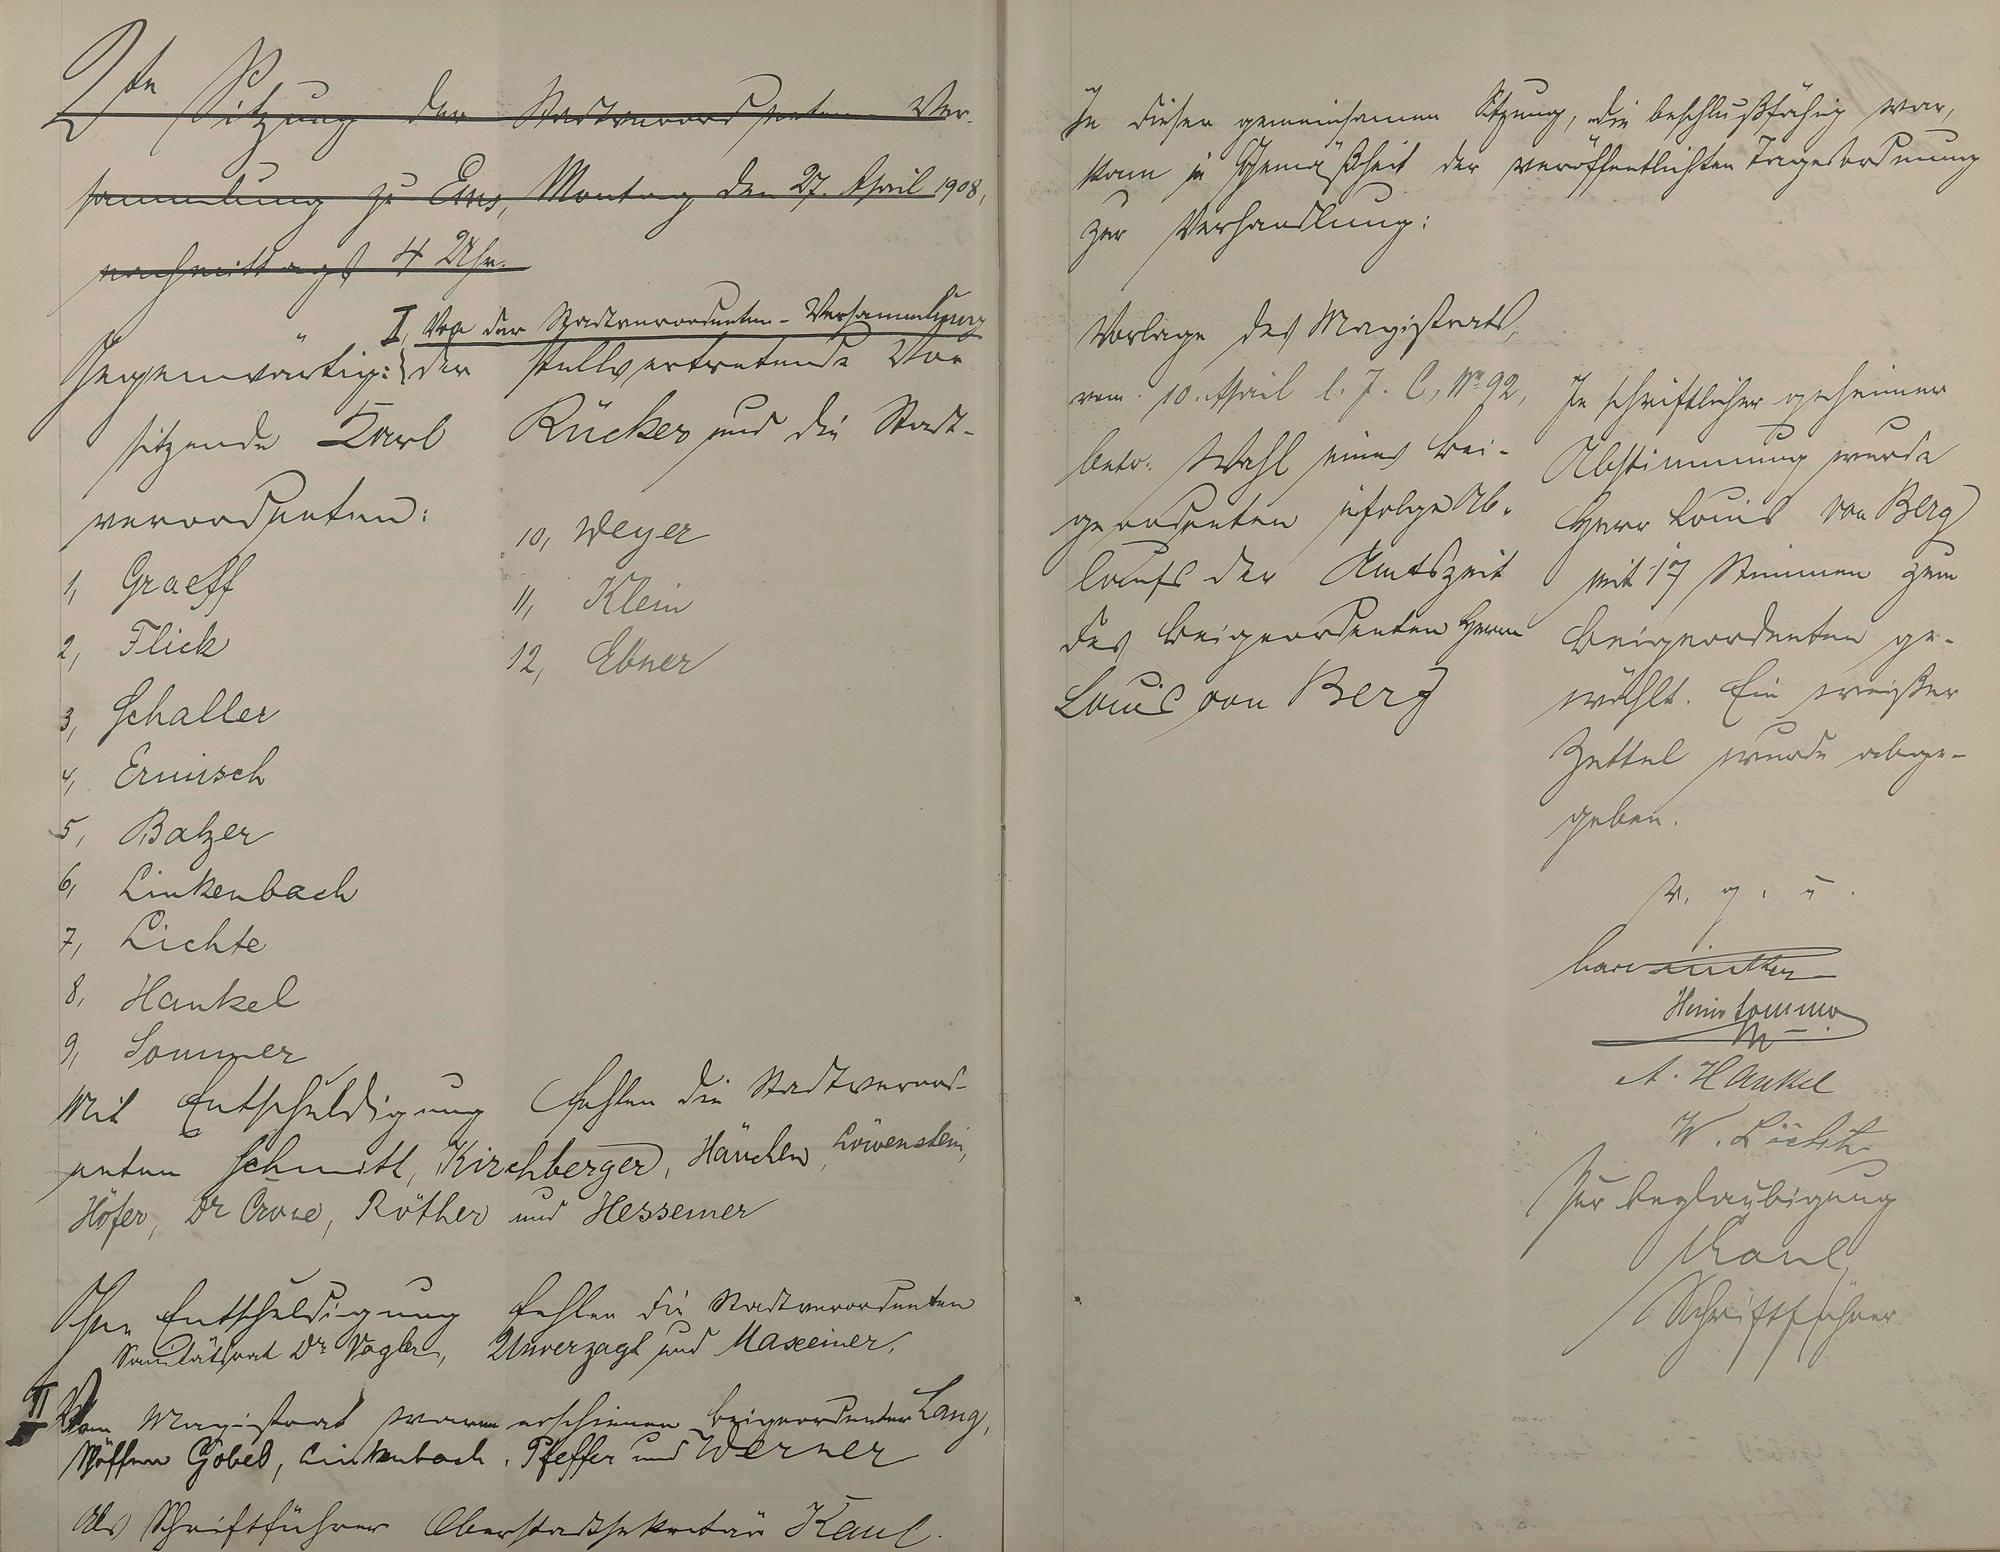 2te Sitzung der Stadtverordneten-Ver-
sammlung zu Ems, Montag den 27. April 1908,
nachmittags 4 Uhr.
I, Von der Stadtverordneten-Versammlung
Gegenwärtig: der stellvertretende Vor
sitzende Karl Rücker und die Stadt-
verordneten:
1, Graeff
2, Flick
3, Schaller
4, Ermisch
5, Balzer
6, Linkenbach
7, Lichte
8, Hankel
9, Sommer
10, Weyer
11, Klein
12, Ebner
Mit Entschuldigung fehlen die Stadtverord-
neten Schmitt, Kirchberger, Häuchen, Löwenstein,
Höfer, Dr Crone, Röther und Hessemer
Ohne Entschuldigung fehlen die Stadtverordneten
Sanitätsrat Dr Vogler, Unverzagt und Maxeiner.
II Vom Magistrat waren erschienen Beigeordneter Lang,
Schöffen Göbel, Linkenbach, Pfeffer und Werner
Als Schriftführer Oberstadtsekretär Kaul.
In dieser gemeinsamen Sitzung, die beschlußfähig war,
kam in Gemäßheit der veröffentlichten Tagesordnung
zur Verhandlung:
Vorlage des Magistrats,
vom 10. April l. J. C, No 92,
betr. Wahl eines Bei-
geordneten infolge Ab-
laufs der Amtszeit
des Beigeordneten Herrn
Louis von Berg
In schriftlicher geheimer
Abstimmung wurde
Herr Louis von Berg
mit 17 Stimmen zum
Beigeordneten ge-
wählt. Ein weißer
Zettel wurde abge-
geben.
v. g. u.
A. Hankel
W. Lichte
Zur Beglaubigung
Kaul
Schriftführer